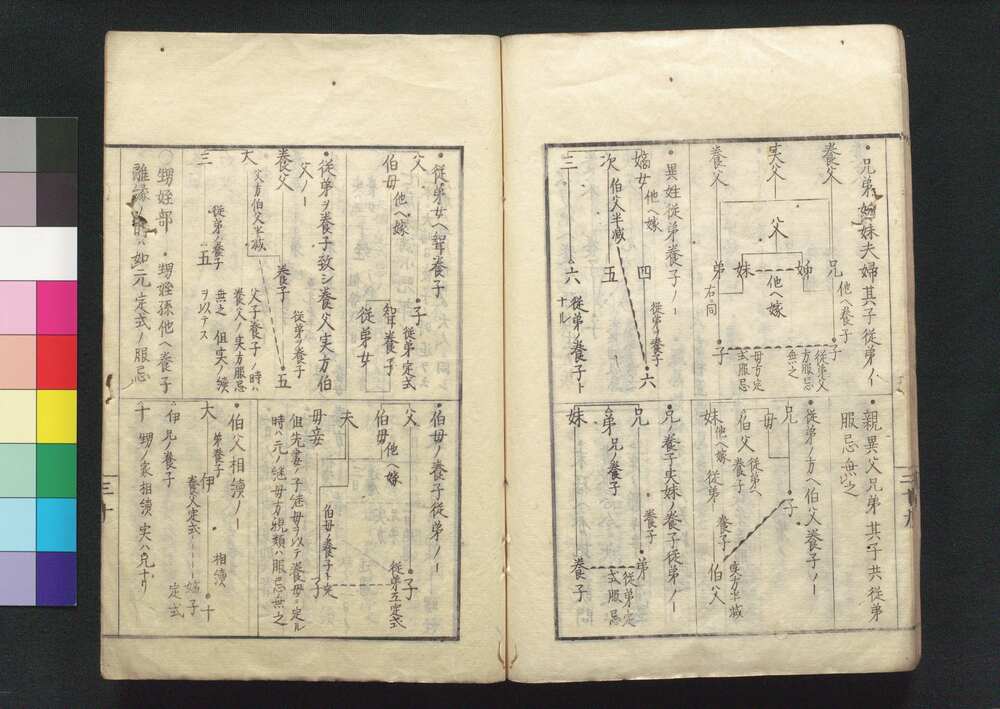 ・兄弟姉妹夫婦其子従弟ノー
養父
実父
養父
父
兄
他ヘ養子
姉
妹
弟
他ヘ嫁
右同
子
子
従弟父
方服忌
無之
母方定
式服忌
・異姓従弟養子ノー
嫡女
他ヘ嫁
四
従弟ヲ養子
六
次
伯父半減
五
三
六
従弟養子ト
ナル
・親異父兄弟其子共従弟
服忌無之
・従弟ノ方ヘ伯父養子ノー
兄
子
母
伯父
従弟ヘ
養子
妹
他ヘ嫁
従弟
養子
伯父
実方半減
・兄ノ養子夫妹ノ養子従弟ノー
兄
養子
弟
弟
兄ノ養子
従弟定
式服忌
妹
養子
・従弟女ヘ聟養子
父
子
従弟定式
伯母
他ヘ嫁
聟養子
従弟女
・従弟ヲ養子致シ養父実方伯
父ノー
養父
養子
従弟ヲ養子
五
大
父方伯父半減
父子養子ノ時ハ
養父ノ実方服忌
無之但実ノ続
ヲ以テス
三
従弟ノ養子
五
○甥姪部
・甥姪孫他ヘ養子
離縁ノ時ハ如元定式ノ服忌
・伯母ノ養子従弟ノー
父
子
従弟互定式
伯母
他ヘ嫁
夫
伯母ノ養子ト定
母妾
子
但先妻ノ子継母ヲ以テ養母ト定ル
時ハ元ノ継母方親類ハ服忌無之
・伯父相続ノー
大
弟養子
伊
相続
十
養父定式
嫡子
伊兄ノ養子
定式
十
甥ノ家相続実ハ兄ナリ
三十九
三十